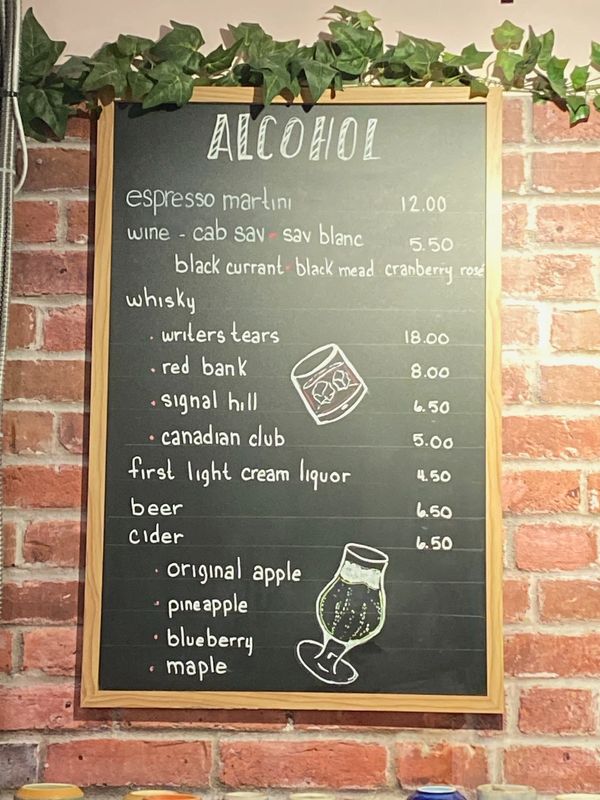 ALCOHOL
espresso martini 12.00
wine - cab sav - sav blanc 5.50
black currant - black mead cranberry rosé
whisky
· writers tears 18.00
· red bank 8.00
· signal hill 6.50
· canadian club 5.00
first light cream liquor 4.50
beer 6.50
cider 6.50
· original apple
· pineapple
· blueberry
· maple